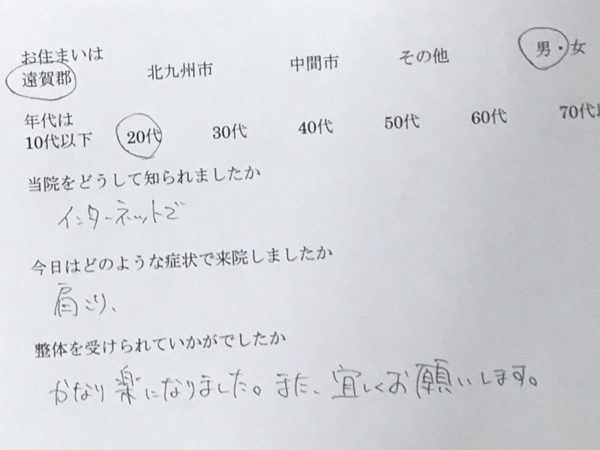 お住まいは
遠賀郡 北九州市 中間市 その他 男・女
年代は
10代以下 20代 30代 40代 50代 60代 70代以
当院をどうして知られましたか
インターネットで
今日はどのような症状で来院しましたか
肩こり、
整体を受けられていかがでしたか
かなり楽になりました。また、宜しくお願いします。